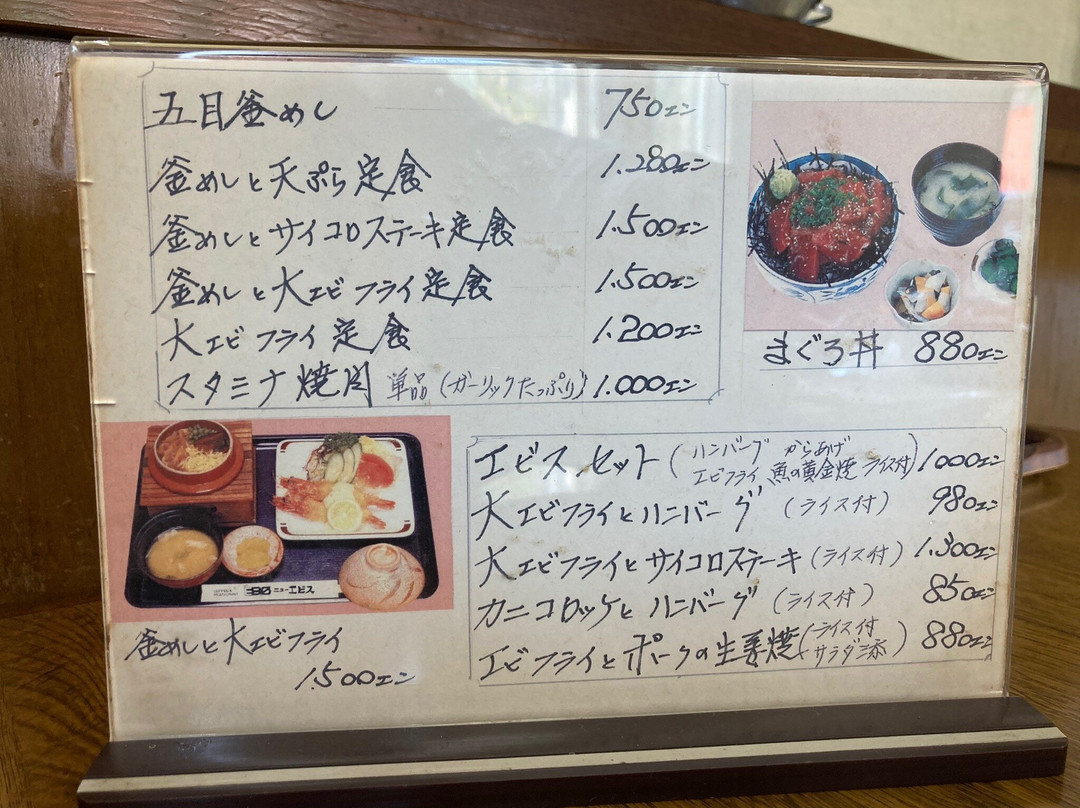 五目釜めし 750エン
釜めしと天ぷら定食 1.280エン
釜めしとサイコロステーキ定食 1.500エン
釜めしと大エビフライ定食 1.500エン
大エビフライ定食 1.200エン
スタミナ焼肉 単品(ガーリックたっぷり) 1.000エン
まぐろ丼 880エン
ニューエビス
釜めしと大エビフライ
1.500エン
エビスセット(ハンバーグ からあげ
エビフライ 魚の黄金焼 ライス付) 1000エン
大エビフライとハンバーグ (ライス付) 980エン
大エビフライとサイコロステーキ(ライス付) 1.300エン
カニコロッケとハンバーグ (ライス付) 850エン
エビフライとポークの生姜焼(ライス付
サラダ添) 880エン